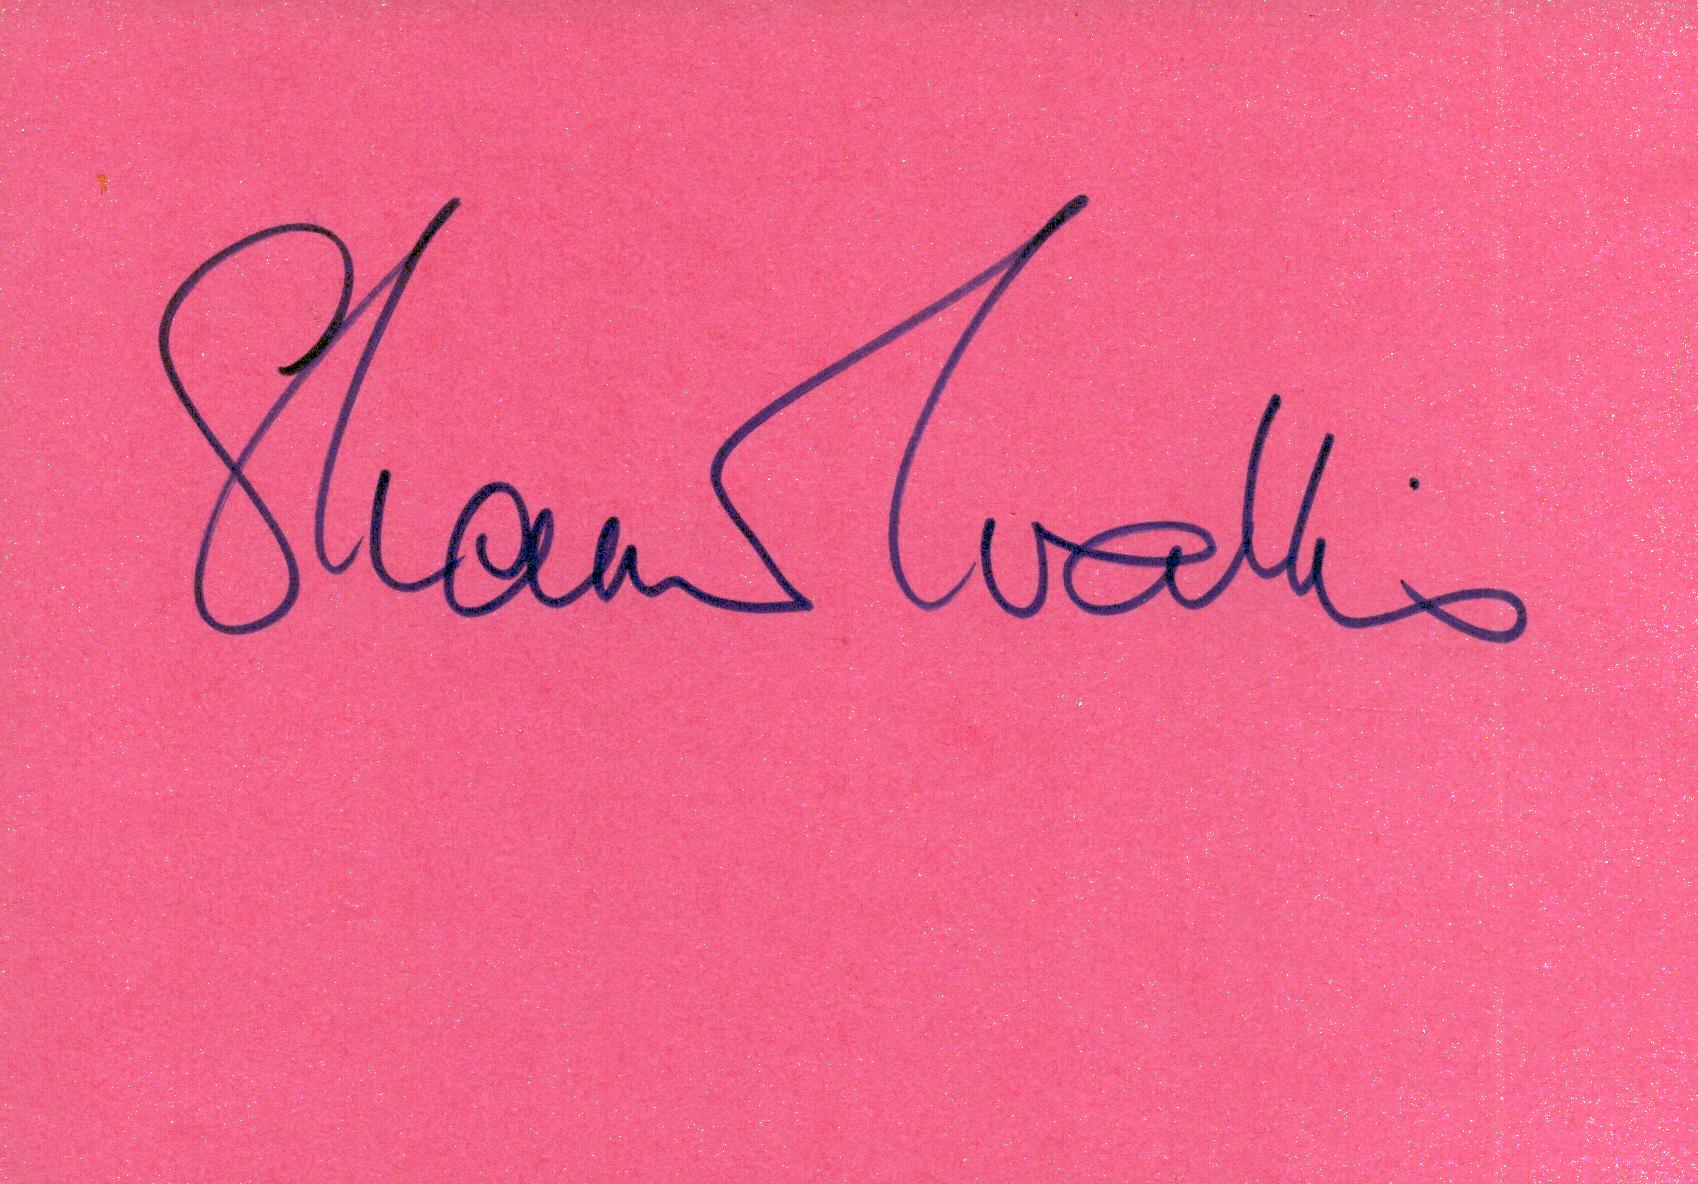 Shani Wallis